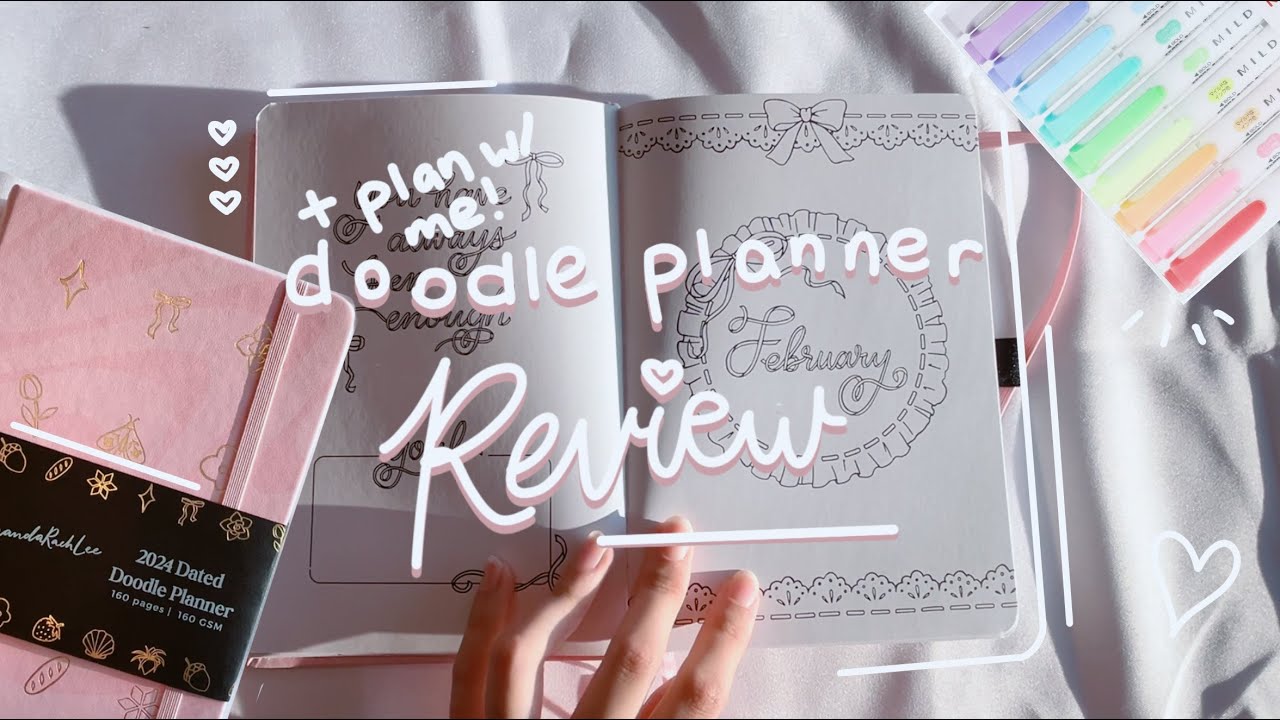 + plan w/
me!
doodle planner
Review
You have
always
been
enough
Goal
February
AmandaRachLee
2024 Dated
Doodle Planner
160 pages | 160 GSM
MILD
MILD
MILD